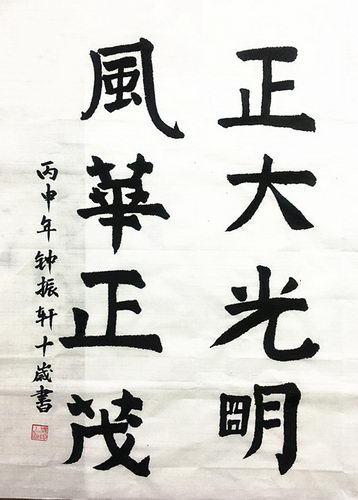 正大光明
風華正茂
丙申年钟振轩十歲書